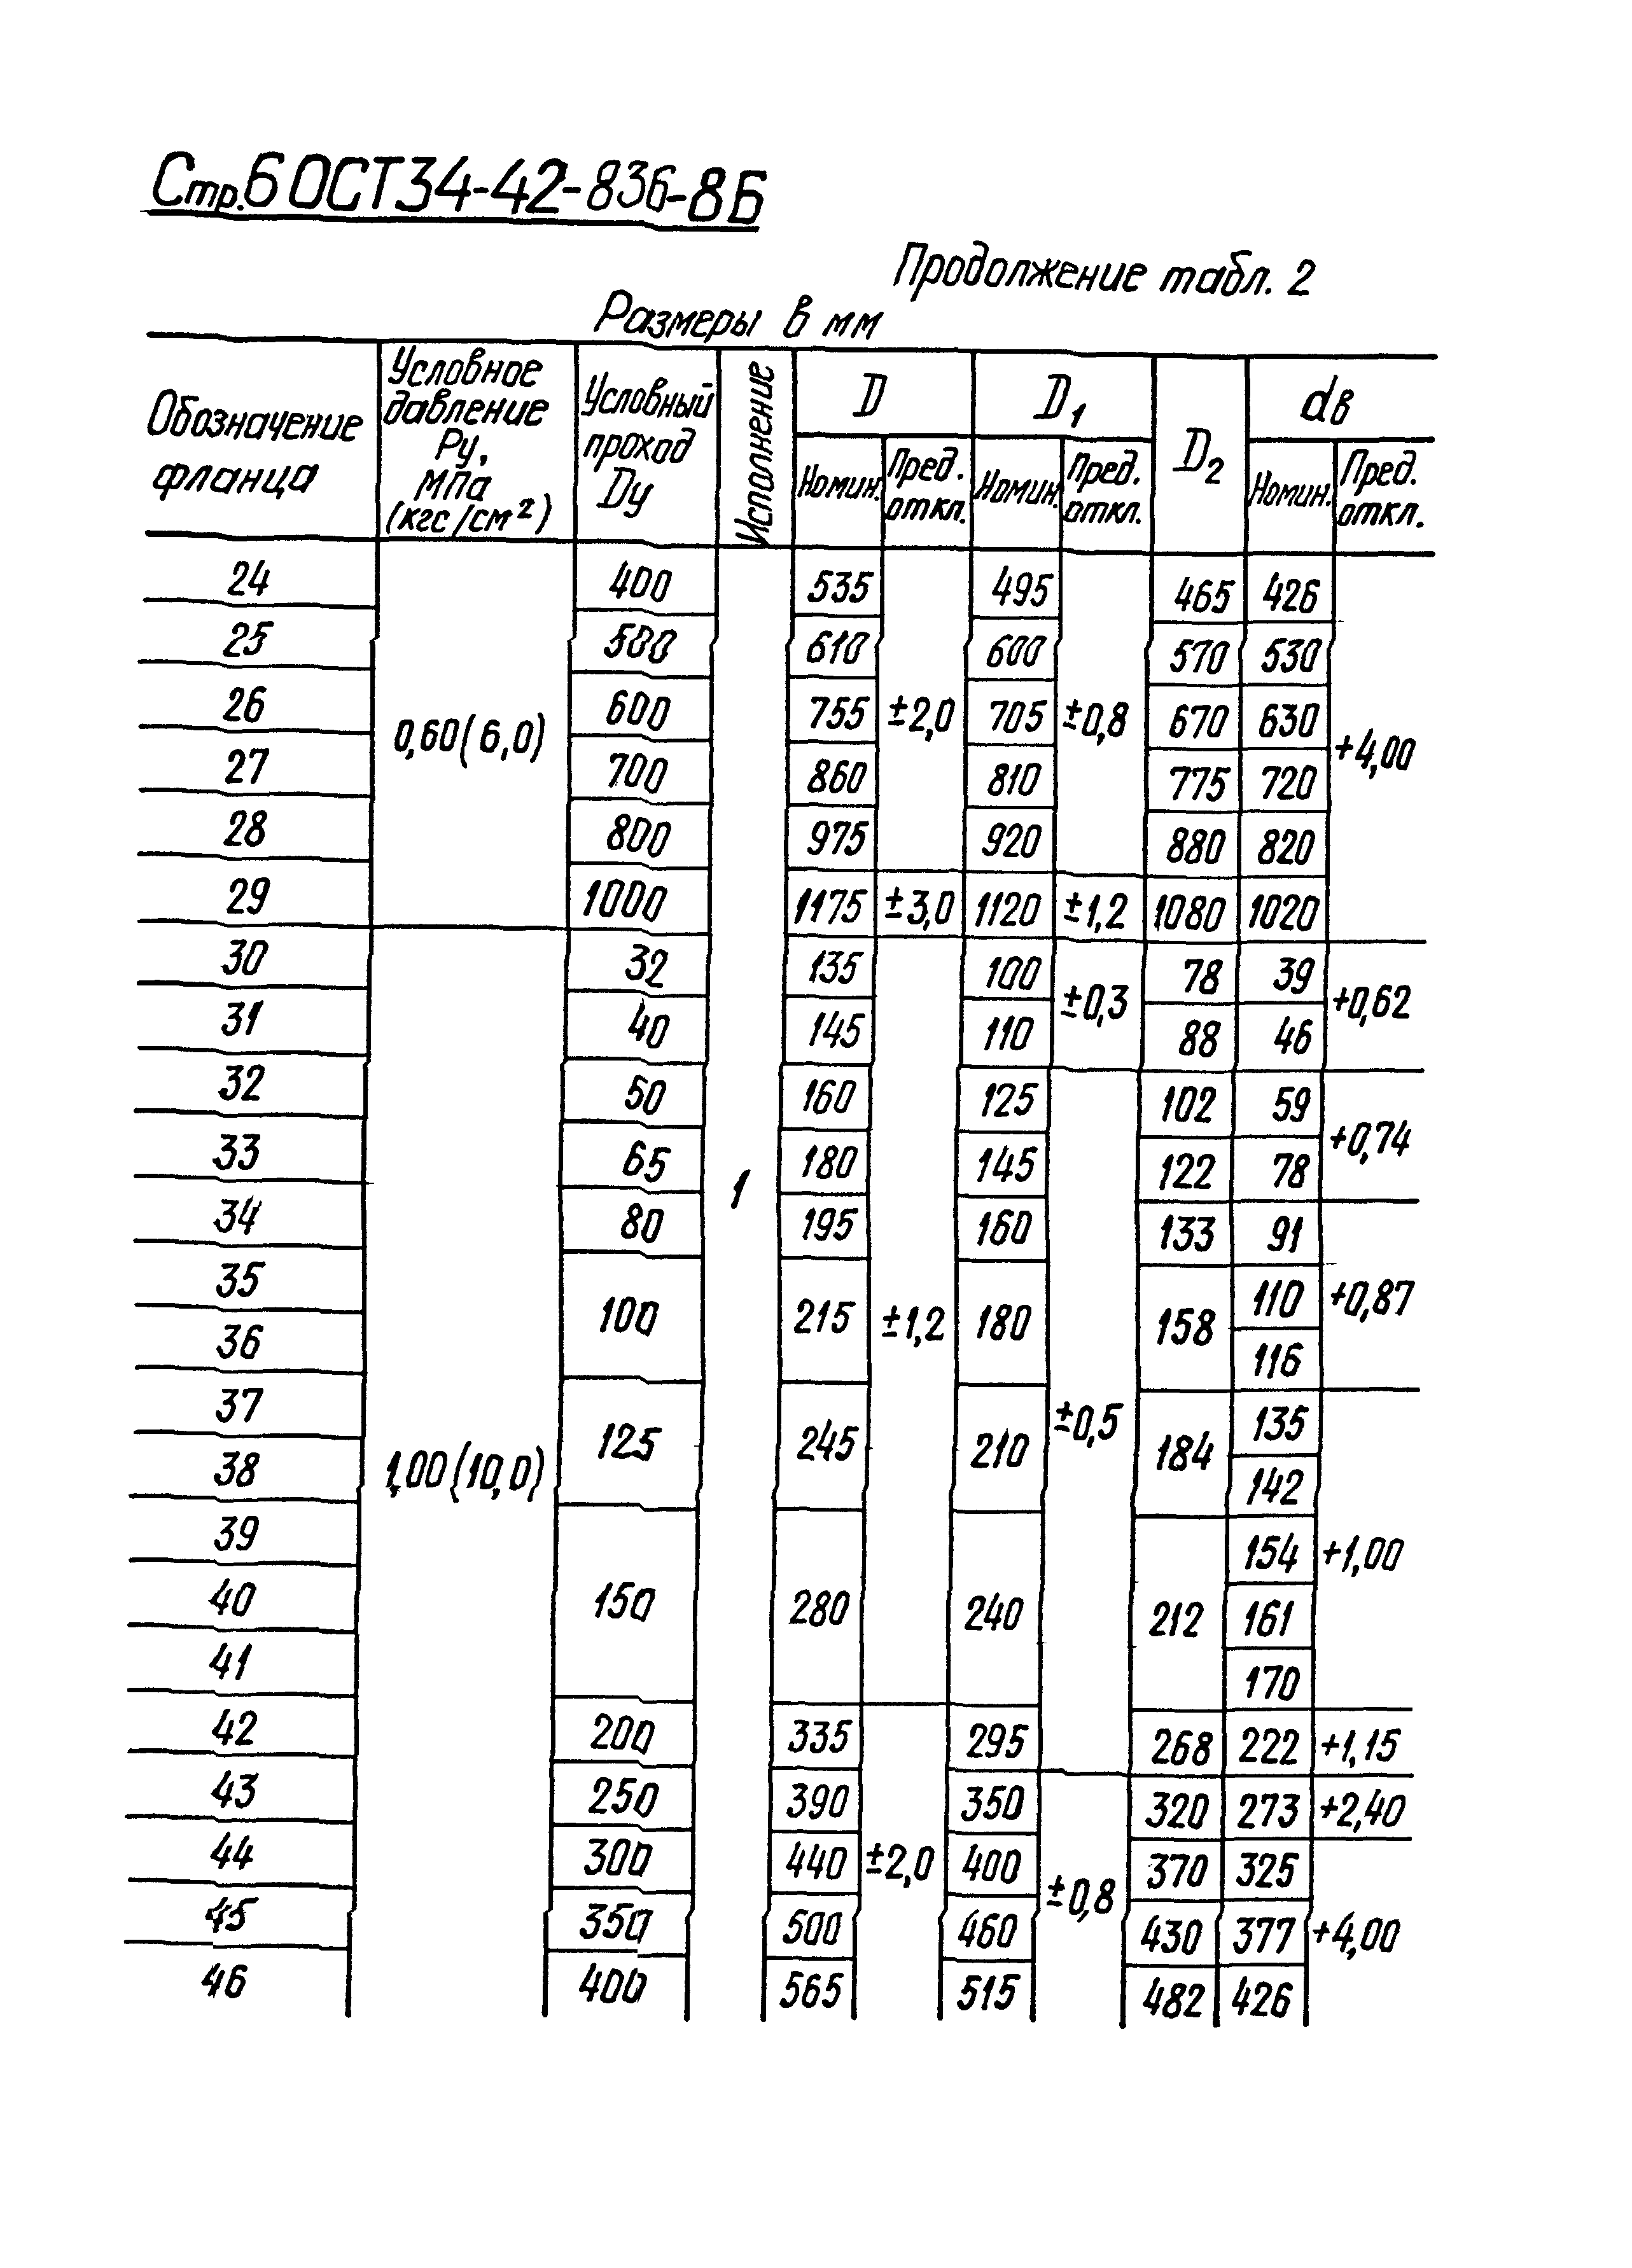 Стр.6 ОСТ34-42-836-86
Продолжение табл. 2
Размеры в мм
Обозначение фланца | Условное давление Ру, МПа (кгс/см²) | Условный проход Dу | Исполнение | D | D1 | D2 | dв
Номин. | Пред. откл. | Номин. | Пред. откл. | Номин. | Пред. откл.
24 | 0,60(6,0) | 400 | 1 | 535 | ±2,0 | 495 | ±0,8 | 465 | 426 | +4,00
25 | 500 | 610 | 600 | 570 | 530
26 | 600 | 755 | 705 | 670 | 630
27 | 700 | 860 | 810 | 775 | 720
28 | 800 | 975 | 920 | 880 | 820
29 | 1000 | 1175 | ±3,0 | 1120 | ±1,2 | 1080 | 1020
30 | 1,00(10,0) | 32 | 135 | ±1,2 | 100 | ±0,3 | 78 | 39 | +0,62
31 | 40 | 145 | 110 | 88 | 46
32 | 50 | 160 | 125 | ±0,5 | 102 | 59 | +0,74
33 | 65 | 180 | 145 | 122 | 78
34 | 80 | 195 | 160 | 133 | 91 | +0,87
35 | 100 | 215 | 180 | 158 | 110
36 | 116
37 | 125 | 245 | 210 | 184 | 135 | +1,00
38 | 142
39 | 150 | 280 | 240 | 212 | 154
40 | 161
41 | 170
42 | 200 | 335 | ±2,0 | 295 | 268 | 222 | +1,15
43 | 250 | 390 | 350 | ±0,8 | 320 | 273 | +2,40
44 | 300 | 440 | 400 | 370 | 325 | +4,00
45 | 350 | 500 | 460 | 430 | 377
46 | 400 | 565 | 515 | 482 | 426